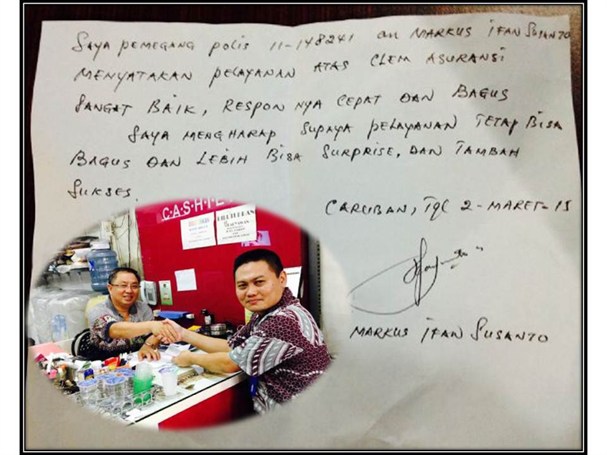 Saya pemegang polis 11-148241 an MARKUS IFAN SUSANTO
MENYATAKAN PELAYANAN ATAS CLEM ASURANSI
SANGAT BAIK, RESPON NYA CEPAT DAN BAGUS
SAYA MENGHARAP SUPAYA PELAYANAN TETAP BISA
BAGUS DAN LEBIH BISA SURPRISE, DAN TAMBAH
SUKSES.
CARUBAN, TGL 2-MARET-15
MARKUS IFAN SUSANTO
CASHIE